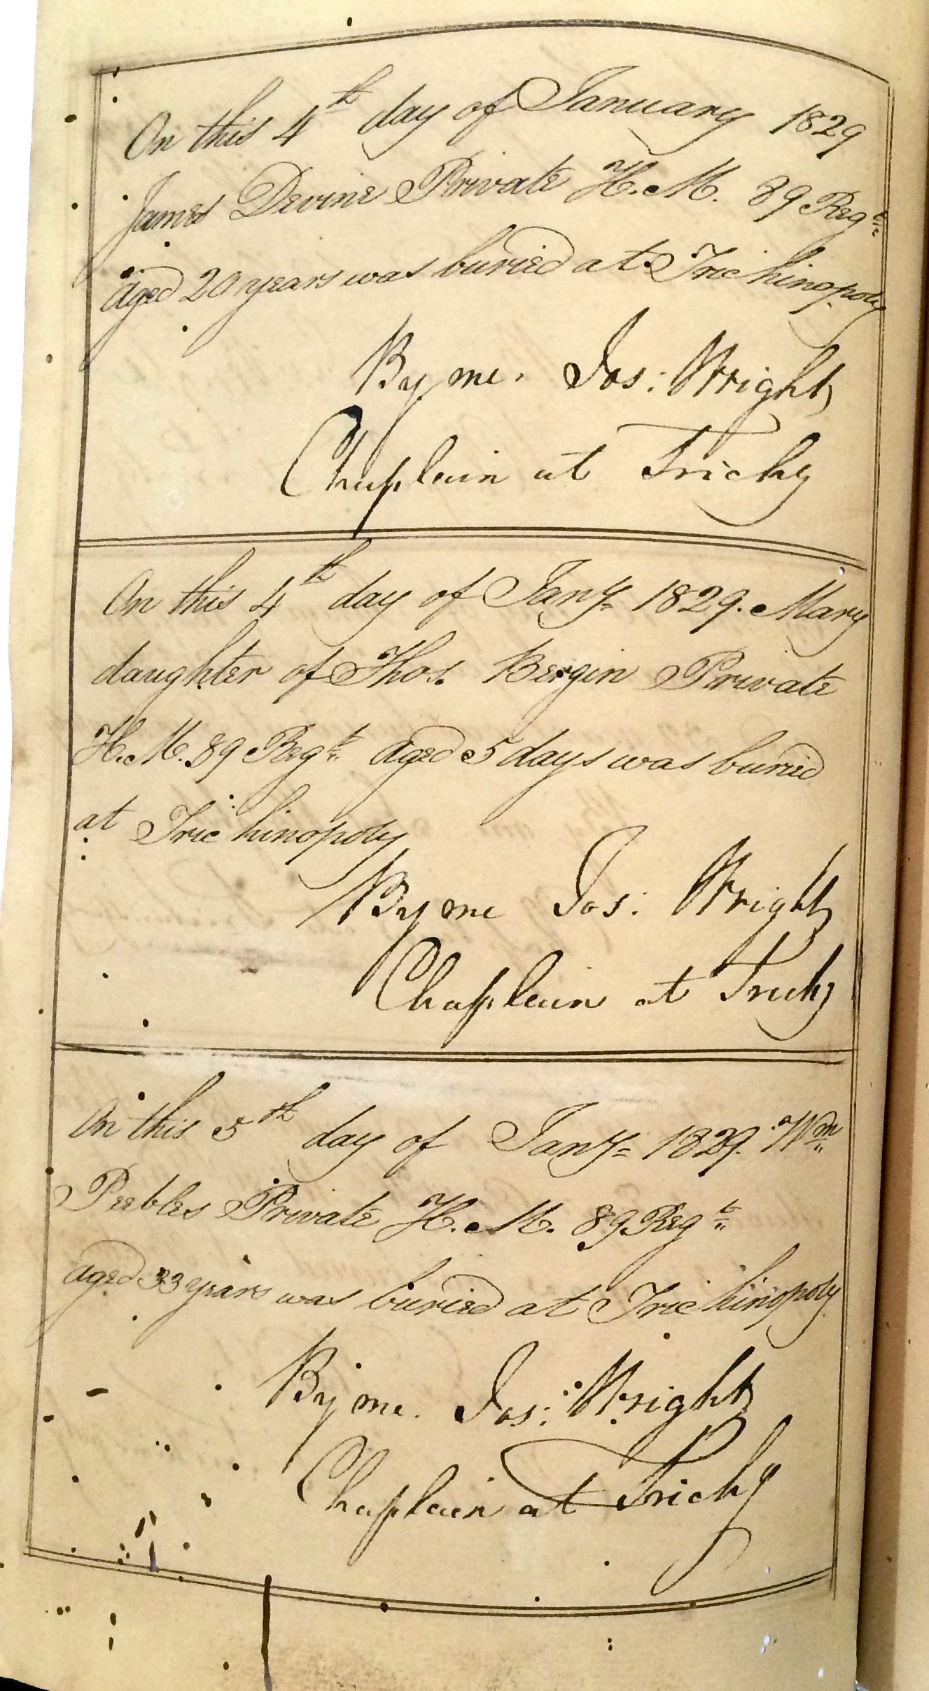 On this 4th day of January 1829
James Devine Private H. M. 89 Regt.
aged 20 years was buried at Trichinopoly
By me. Jos: Wright
Chaplain at Trichy
On this 4th day of Jany. 1829. Mary
daughter of Thos. Bergin Private
H. M. 89 Regt. aged 5 days was buried
at Trichinopoly
By me Jos: Wright
Chaplain at Trichy
On this 5th day of Jany. 1829. Wm.
Peebles Private H. M. 89 Regt.
aged 33 years was buried at Trichinopoly
By me. Jos: Wright
Chaplain at Trichy